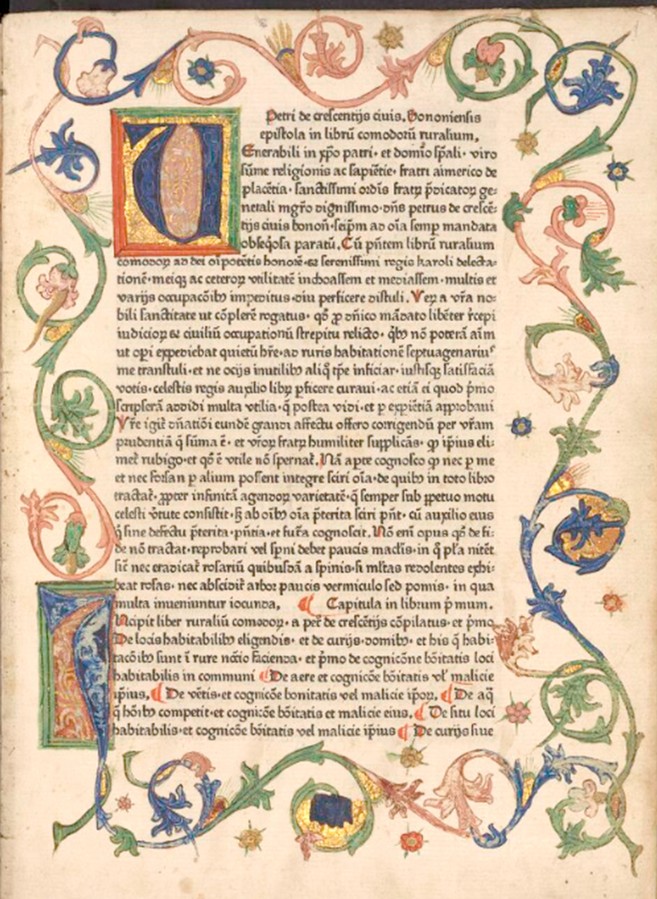 Petri de crescentijs ciuis. Bononiensis
epistola in librū comodorū ruralium.
Enerabili in xp̄o patri · et domīo sp̄ali · viro
sūme religionis ac sapiētie · fratri aimerico de
placētia · sanctissimi ordīs fratꝝ p̄dicatoꝝ ge-
nerali mgr̄o dignissimo · dn̄s petrus de crescē-
tijs ciuis bonoñ · seip̄m ad oīa semp mandata
obseq̄osa paratū. Cū pn̄tem librū ruralium
comodoꝝ ad dei oīpotētis honorē · ꝛ serenissimi regis karoli delecta-
tionē · meiqꝫ ac ceteroꝝ vtilitatē inchoassem et mediassem · multis et
varijs occupacōibꝰ impeditus · diu perficere distuli. Veꝝ a vr̄a no-
bili sanctitate ut cōplerē rogatus · qꝫ ꝓ dn̄ico mādato libēter recepi
iudicioꝝ ꝛ ciuiliū occupationū strepitu relicto · qibꝰ nō poterā aīm
ut opi expediebat quietū hr̄e · ad ruris habitationē septuagenariuꝰ
me transtuli · et ne ocijs inutilibꝰ aliq̄ tp̄e inficiar · iustisqꝫ satisfaciā
votis · celestis regis auxilio libꝝ ꝑficere curaui · ac etiā ei quod pͥmo
scripserā addidi multa vtilia · q̄ postea vidi · et ꝑ expiētiā approbaui
Vr̄e igit̄ dn̄atiōi eundē grandi affectu offero corrigendū per vr̄am
prudentiā q̄ sūma ē · et vr̄oꝝ fratꝝ humiliter supplicās · ꝙ ip̄ius eli-
met̄ rubigo · et qꝫ ē vtile nō spernat̄. Nā apte cognosco ꝙ nec ꝑ me
et nec forsan ꝑ alium possent integre sciri oīa · de quibꝰ in toto libro
tractat̄ · ꝓpter infinitā agendoꝝ varietatē · q̄ semper sub ꝑpetuo motu
celesti v̄tute consistit · sꝫ ab oībꝰ oīa p̄terita sciri pn̄t · cū auxilio eius
q̇ sine defectu p̄terita · pn̄tia · et fut̄a cognoscit. Nō em̄ opus qꝫ de fi-
de nō tractat · reprobari vel sp̄ni debet paucis maclis · in q̄ pl̄a nitēt
sic̄ nec eradicat̄ rosariū quibusdā a spinis · si ml̄tas redolentes exhi-
beat rosas · nec abscidit̄ arbor paucis vermiculo sed pomis · in qua
multa inueniuntur iocunda. ¶ Capitula in librum pͥmum.
Incipit liber ruraliū comodoꝝ · a petͦ de crescētijs cōpilatus · et pͥmo
De locis habitabilibꝰ eligendis · et de curijs · domibꝰ · et his q̄ habi-
tacōibꝰ sunt ī rure nc̄cio facienda · et pͥmo de cognicōne bōitatis loci
habitabilis in communi ¶ De aere et cognicōe bōitatis vl̄ malicie
ip̄ius. ¶ De vētis · et cognicōe bonitatis vel malicie ip̄oꝝ. ¶ De aq̄
q̄ hōibꝰ competit · et cognicōe bōitatis et malicie eius. ¶ De situ loci
habitabilis · et cognicōe bōitatis vel malicie ip̄ius ¶ De curijs siue